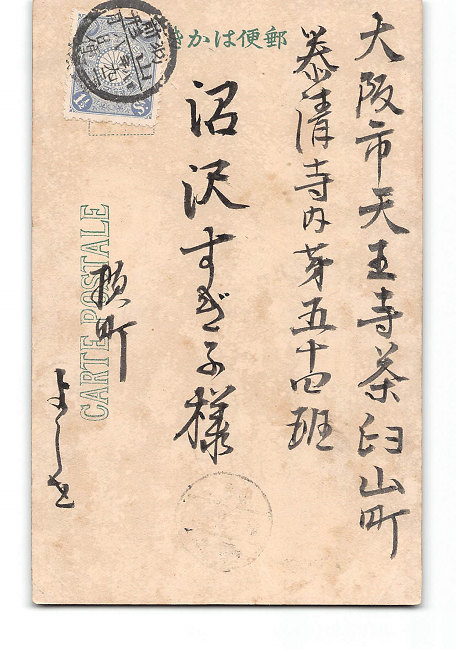 郵便はかき
大阪市天王寺茶臼山町
泰清寺内第五十四班
沼沢すぎ子様
横町
CARTE POSTALE
1½ Sn.